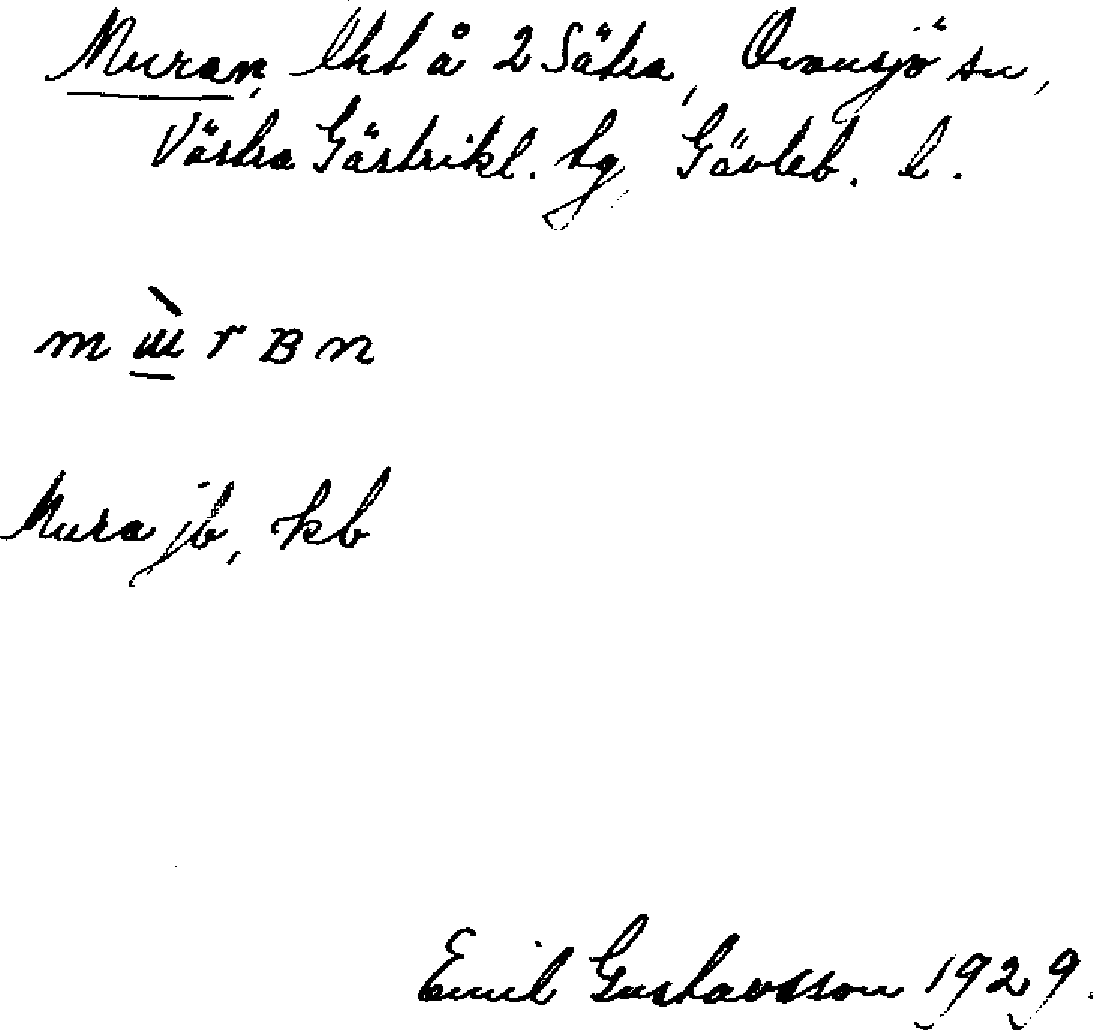 Muran, lht å 2 Sätra, Ovansjö sn,
Västra Gästrikl. tg, Gävleb. l.
Mura jb, kb
Emil Gustavsson 1929.